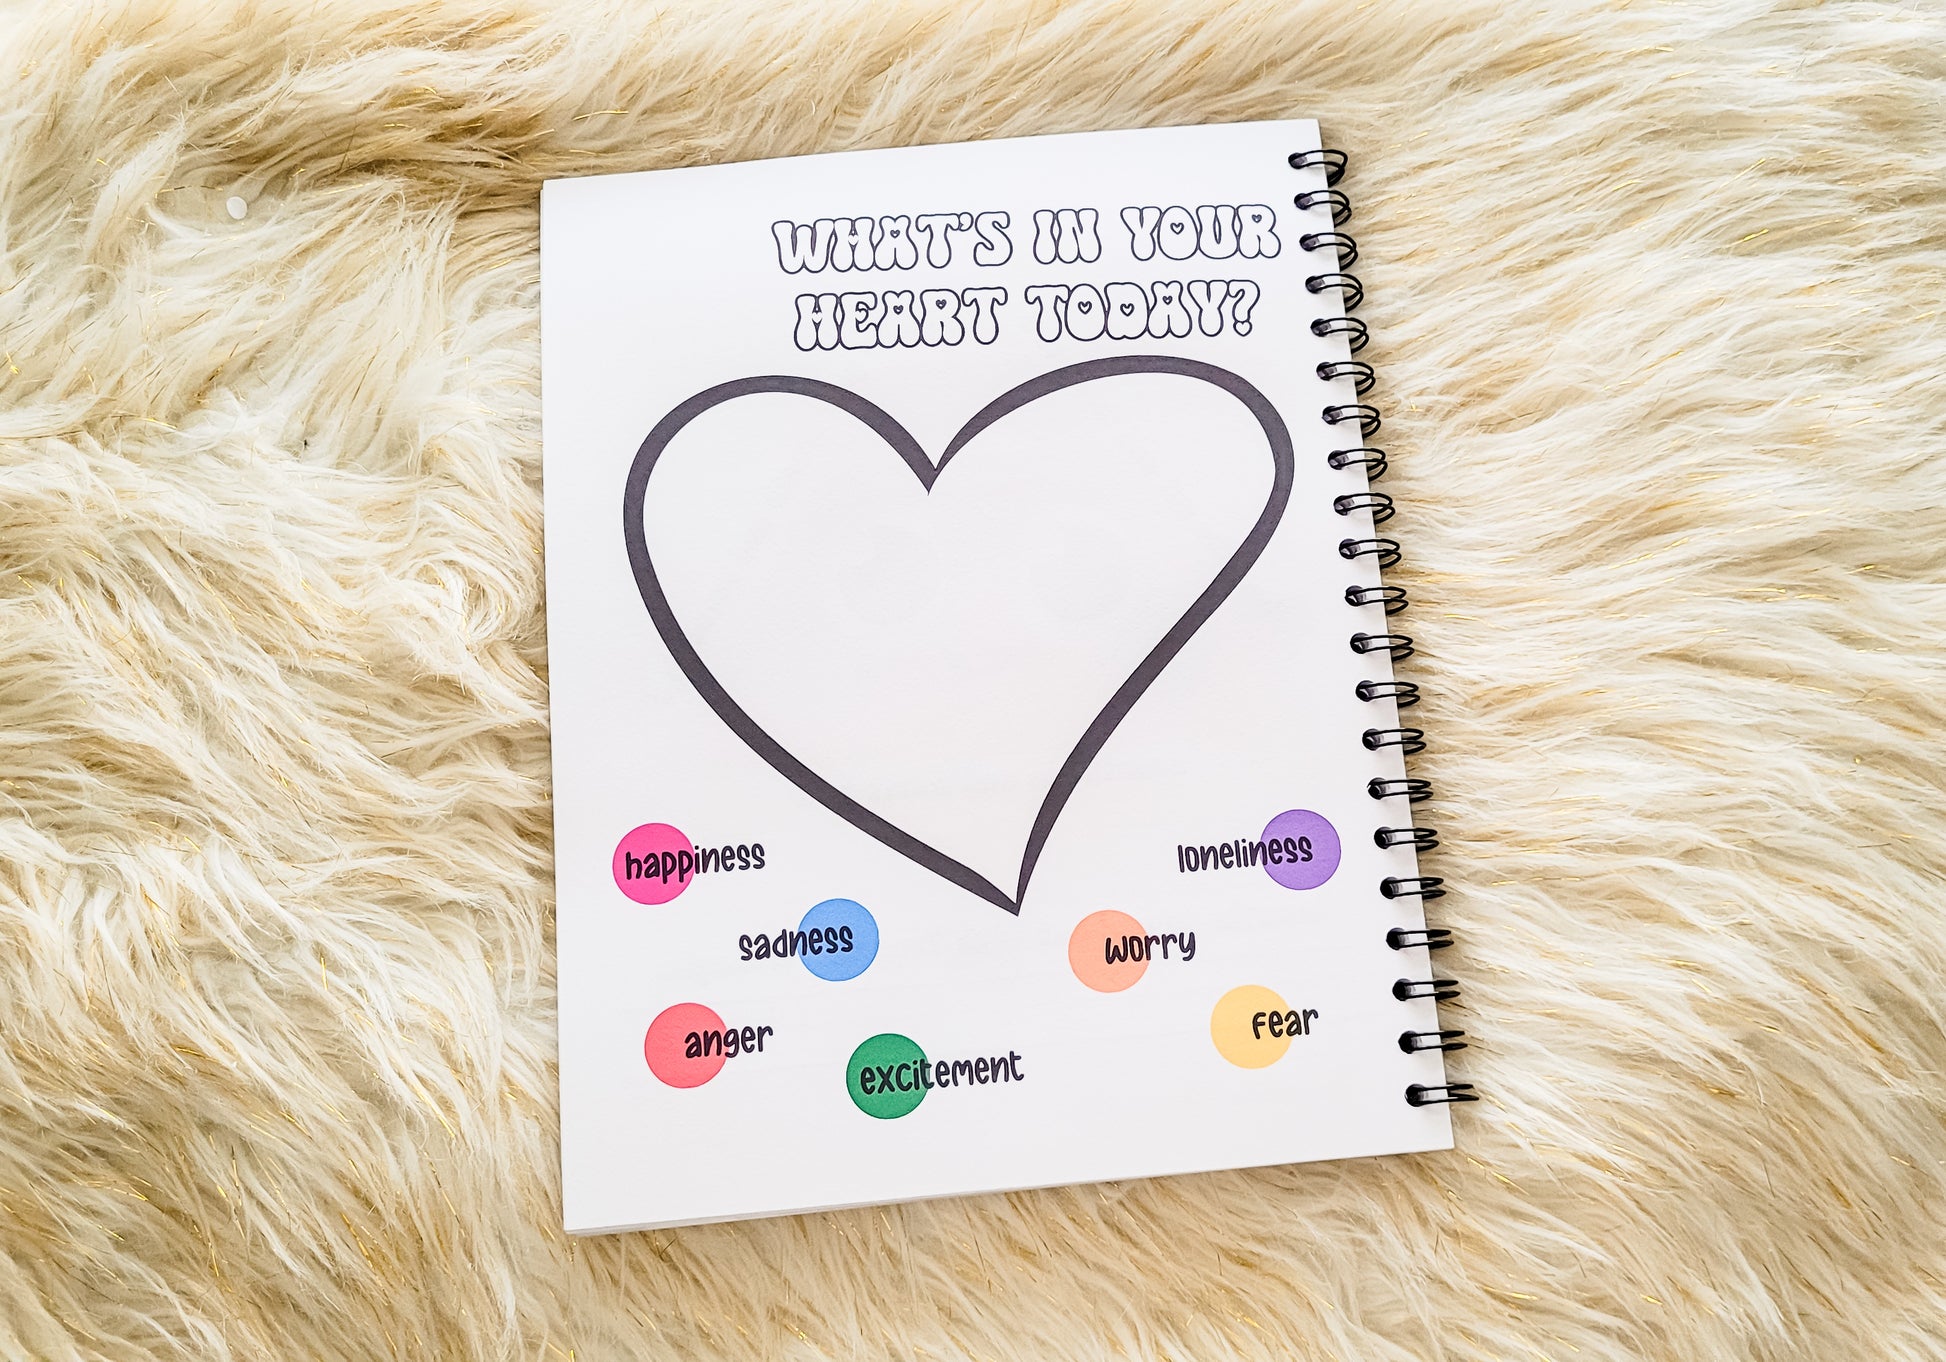 WHAT'S IN YOUR
HEART TODAY?
happiness
loneliness
sadness
worry
anger
fear
excitement